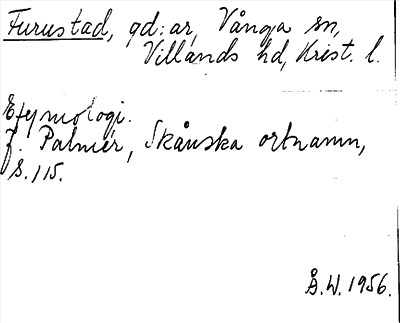 Furustad, gd:ar, Vånga sn,
Villands hd, Krist. l.
Etymologi.
J. Palmér, Skånska ortnamn,
S. 115.
Å.W. 1956.